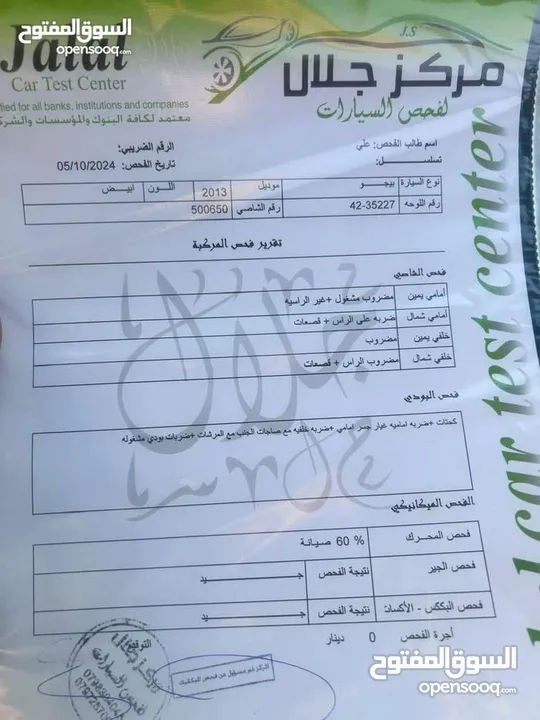 السوق المفتوح
opensooq.com
Jalal
Car Test Center
fied for all banks, institutions and companies
معتمد لكافة البنوك والمؤسسات والشركا
J.S
مركز جلال
لفحص السيارات
الرقم الضريبي:
اسم طالب الفحص: علي
تاريخ الفحص: 05/10/2024
تسلسل:
نوع السيارة بيجو موديل 2013 اللون ابيض
رقم اللوحه 42-35227 رقم الشاصي 500650
تقرير فحص المركبة
فحص الشاصي
أمامي يمين مضروب مشغول +غير الراسيه
أمامي شمال ضربه على الراس + قصعات
خلفي يمين مضروب
خلفي شمال مضروب الراس + قصعات
فحص البودي
كحتات +ضربه اماميه غيار جسر امامي +ضربه خلفيه مع صاجات الجنب مع المرشات +ضربات بودي مشغوله
الفحص الميكانيكي
فحص المحرك 60 % صيانة
فحص الجير نتيجة الفحص جيد
فحص البكس - الأكسات نتيجة الفحص جيد
أجرة الفحص 0 دينار
التوقيع
المركز غير مسؤول عن فحص الميكانيك
مركز جلال
لفحص السيارات
car test center
السوق المفتوح
opensooq.com